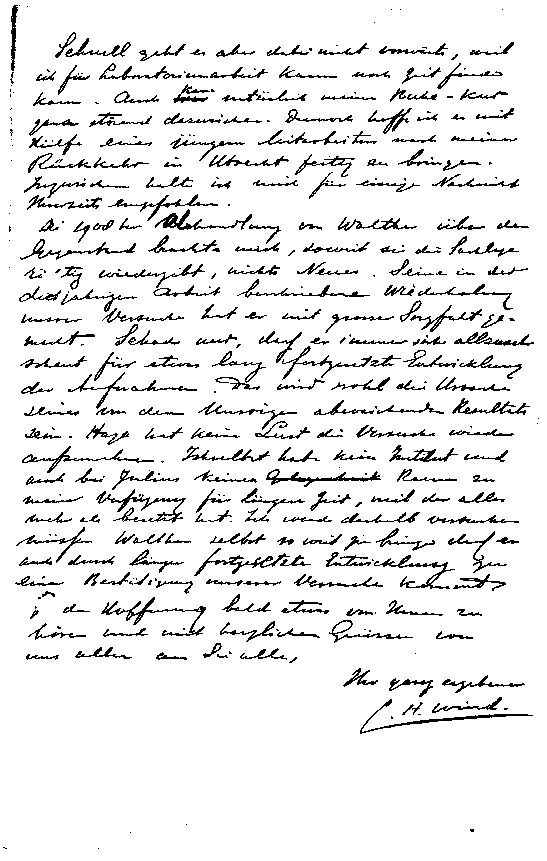 Schnell geht es aber dabei nicht vorwärts, weil
ich für Laboratoriumarbeit kaum noch Zeit finden
kann. Auch kam natürlich meine Ruhe-Kur
ganz störend dazwischen. Dennoch hoffe ich es mit
Hilfe eines jüngern Mitarbeiters nach meiner
Rückkehr in Utrecht fertig zu bringen.
Inzwischen halt ich mich für einige Nachsicht
Ihrerseits empfohlen.
Die 1908er Abhandlung von Walther über den
Gegenstand brachte mich, soweit sie die Sachlage
richtig wiedergibt, nichts Neues. Seine in der
diesjährigen Arbeit beschriebene Wiederholung
unserer Versuche hat er mit grosser Sorgfalt ge-
macht. Schade nur, dass er immer sich allzusehr
scheut für etwas lang fortgesetzte Entwicklung
der Aufnahmen. Das wird wohl die Ursache
seines von dem Unsrigen abweichenden Resultats
sein. Haga hat keine Lust die Versuche wieder
aufzunehmen. Ich selbst habe kein Institut und
auch bei Julius keinen Raum zu
meiner Verfügung für längere Zeit, weil der alles
mehr als besetzt hat. Ich werde deshalb versuchen
müssen Walther selbst so weit zu bringen dass er
auch durch länger fortgesetzte Entwicklung zu
eine Bestätigung unserer Versuche kommt.
In der Hoffnung bald etwas von Ihnen zu
hören und mit herzlichen Grüssen von
uns allen an Sie alle,
Ihr ganz ergebener
C. H. Wind.